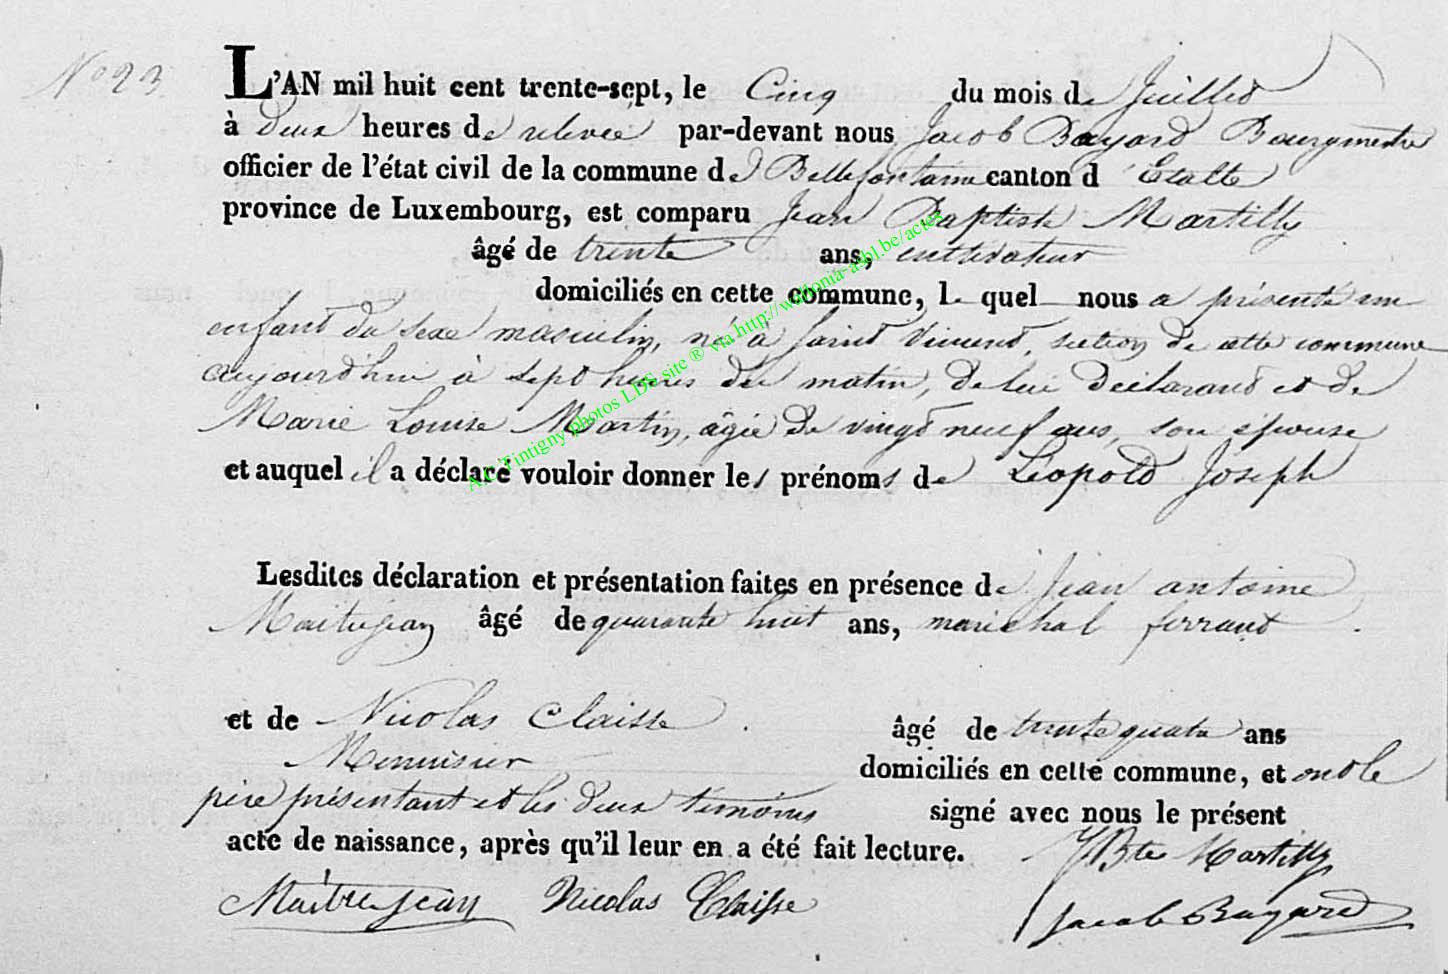 No 23
L'AN mil huit cent trente-sept, le Cinq du mois de Juillet
à deux heures de relevée par-devant nous Jacob Bayard Bourgmestre
officier de l'état civil de la commune de Bellefontaine canton d'Etalle
province de Luxembourg, est comparu Jean Baptiste Martilly
âgé de trente ans, cultivateur
domiciliés en cette commune, le quel nous a présenté un
enfant du sexe masculin, né à Saint Vincent, section de cette commune
aujourd'hui à sept heures du matin, de lui déclarant et de
Marie Louise Martin, âgée de vingt neuf ans, son épouse
et auquel il a déclaré vouloir donner les prénoms de Léopold Joseph
Lesdites déclaration et présentation faites en présence de Jean antoine
Maitrejean âgé de quarante huit ans, maréchal ferrant
et de Nicolas Claisse âgé de trente quatre ans
Menuisier domiciliés en cette commune, et ont le
père présentant et les deux témoins signé avec nous le présent
acte de naissance, après qu'il leur en a été fait lecture. JBte Martilly
Maitrejean Nicolas Claisse Jacob Bayard
A.C. Tintigny photos LDS site ® via http://wallonia-asbl.be/actes